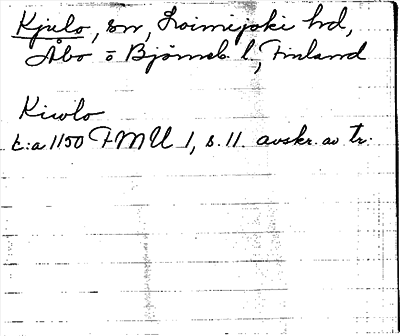 Kjulo, sn, Loimijoki hd,
Åbo o Björneb. l., Finland
Kiwlo
t:a 1150 FMU 1, s. 11. avskr. av tr.